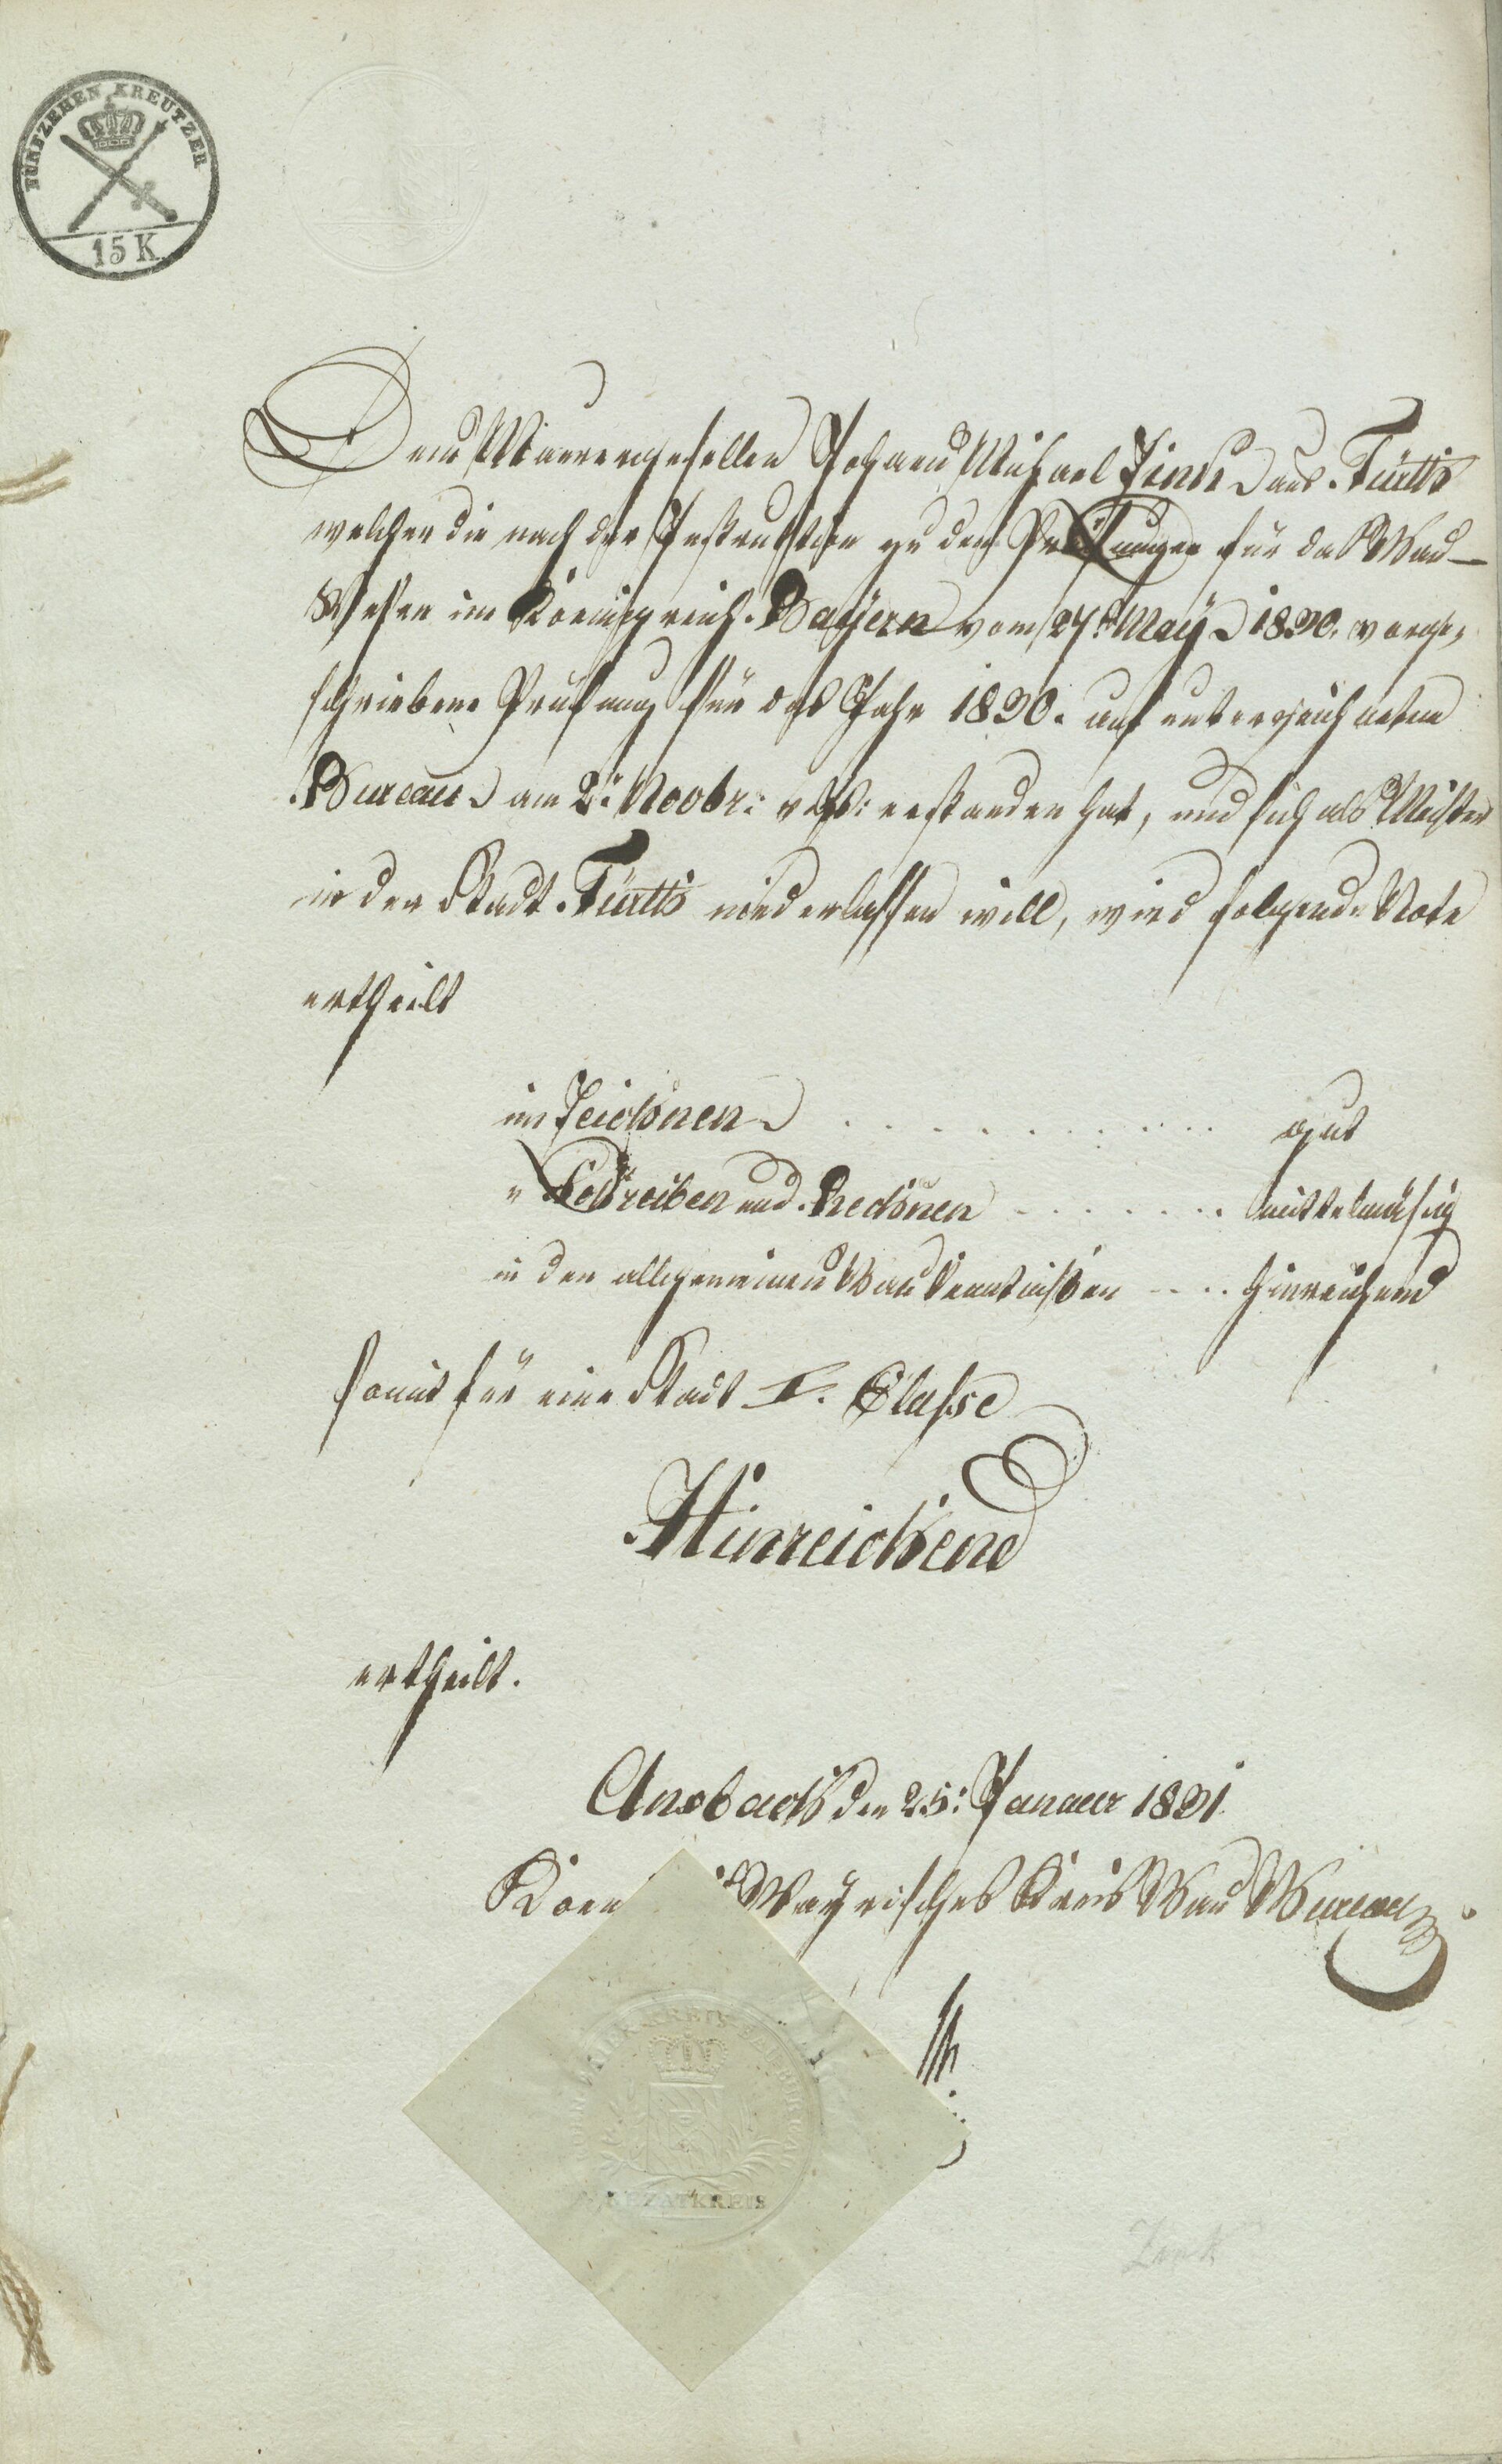 FÜNFZEHEN KREUTZER
15 K
Dem Maurergesellen Johann Michael Zink aus Fürth
welcher die nach der Instruktion zu den Prüfungen für das Bau-
Wesen im Koenigreich Bayern vom 27t May 1830. vorge-
schriebene Prüfung für das Jahr 1830. auf unterzeichnetem
Bureau am 2t. Novbr: v. Js: erstanden hat, und sich als Meister
in der Stadt Fürth niederlassen will, wird folgende Note
ertheilt
im Zeichnen . . . . . . . . . . . gut
" Schreiben und Rechnen . . . . . . . mittelmäßig
in den allgemeinen Baukenntnißen . . . . hinreichend
somit für eine Stadt I. Classe
Hinreichend
ertheilt.
Ansbach den 25t. Januar 1831.
Koen Bayrisches Kreis Bau Bureau
REZATKREIS